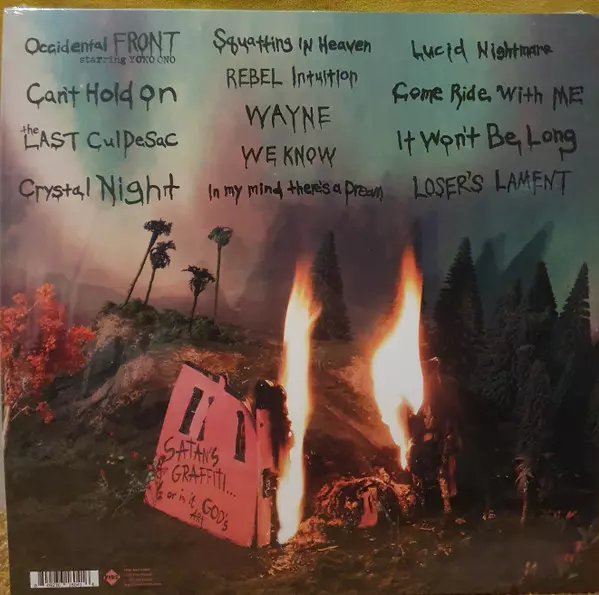 Occidental FRONT
starring YOKO ONO
Can't Hold On
the LAST CulDeSac
Crystal Night
Squatting IN Heaven
REBEL Intuition
WAYNE
WE KNOW
In my mind there's a Dream
Lucid Nightmare
Come Ride With ME
It Won't Be Long
LOSER'S LAMENT
SATAN'S
GRAFFITI...
or is it GOD'S
ART